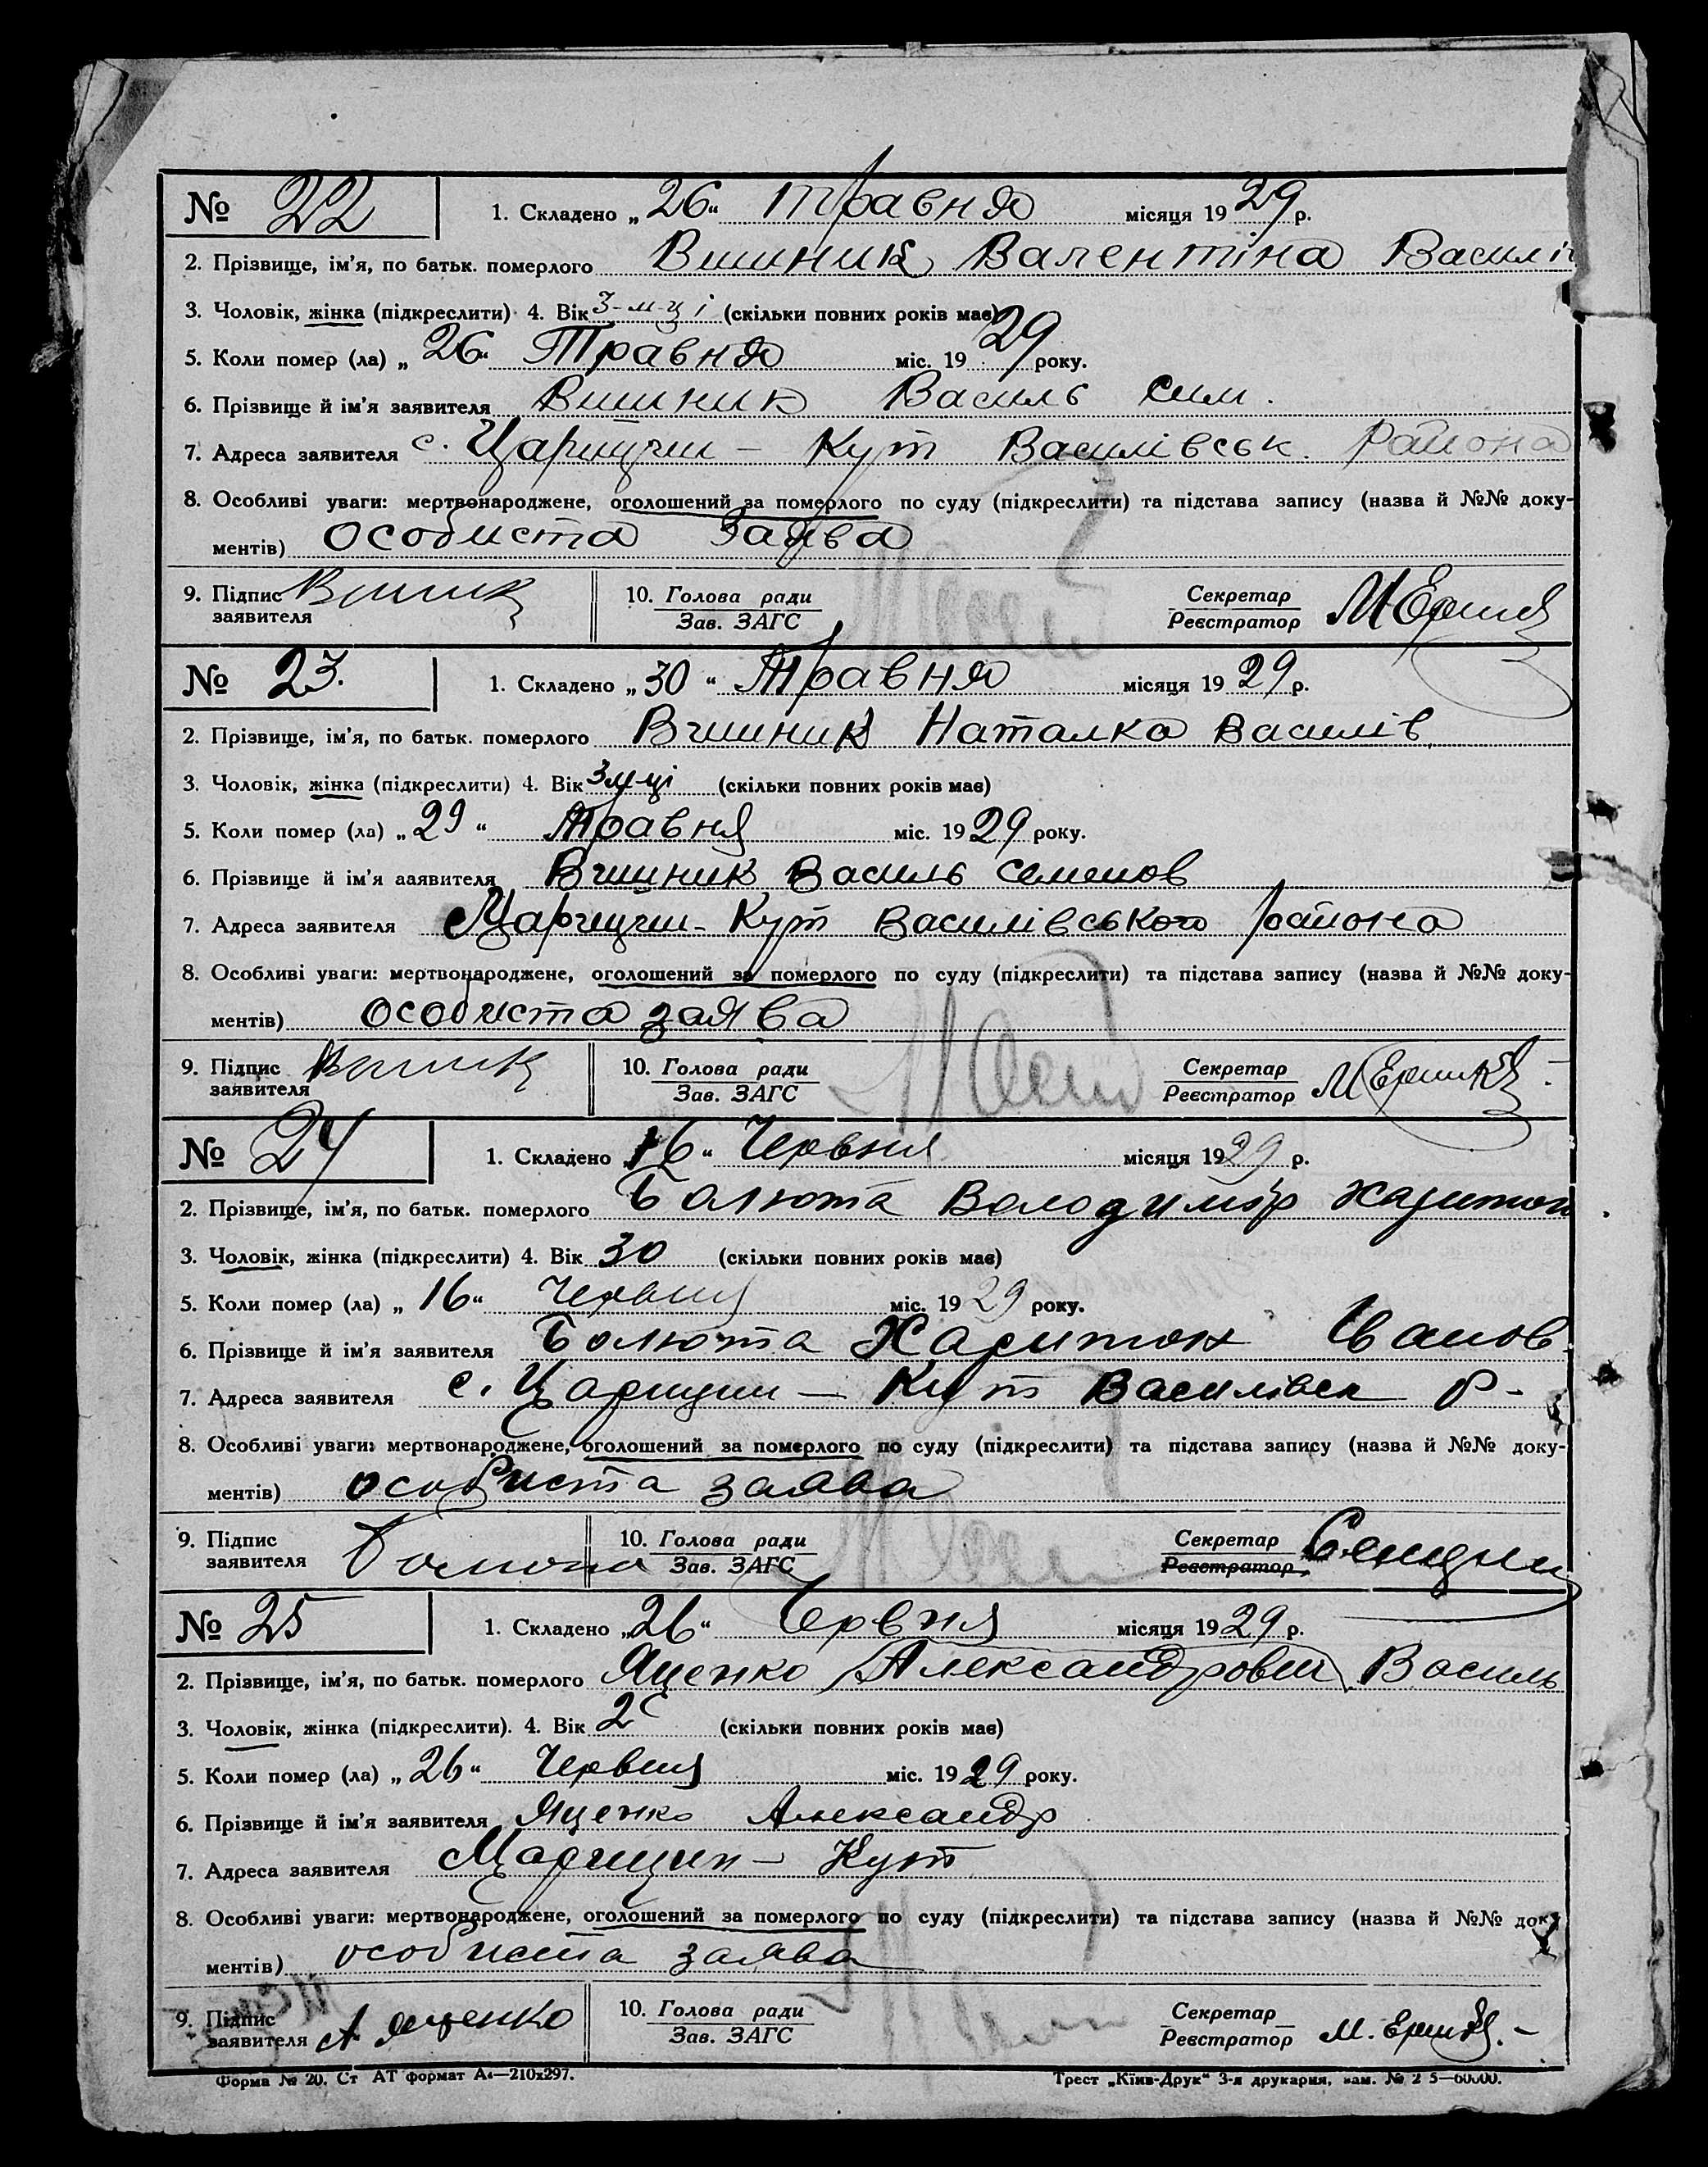 № 22 1. Складено „26“ Травня місяця 1929 р.
2. Прізвище, ім'я, по батьк. померлого Вишник Валентіна Василі
3. Чоловік, жінка (підкреслити) 4. Вік 3-м-ці (скільки повних років має)
5. Коли помер (ла) „26“ Травня міс. 1929 року.
6. Прізвище й ім'я заявителя Вишник Василь Сим.
7. Адреса заявителя с. Царицин - Кут Василівськ. района
8. Особливі уваги: мертвонароджене, оголошений за померлого по суду (підкреслити) та підстава запису (назва й №№ доку-
ментів) особиста заява
9. Підпис заявителя Вишник 10. Голова ради Зав. ЗАГС Секретар Реєстратор
№ 23. 1. Складено „30“ Травня місяця 1929 р.
2. Прізвище, ім'я, по батьк. померлого Вишник Наталка Василів
3. Чоловік, жінка (підкреслити) 4. Вік 3 м-ці (скільки повних років має)
5. Коли помер (ла) „29“ Травня міс. 1929 року.
6. Прізвище й ім'я заявителя Вишник Василь Семенов
7. Адреса заявителя с Царицин - Кут Василівського района
8. Особливі уваги: мертвонароджене, оголошений за померлого по суду (підкреслити) та підстава запису (назва й №№ доку-
ментів) особиста заява
9. Підпис заявителя Вишник 10. Голова ради Зав. ЗАГС Секретар Реєстратор
№ 24 1. Складено „16“ Червня місяця 1929 р.
2. Прізвище, ім'я, по батьк. померлого Балюта Володимір Харитон
3. Чоловік, жінка (підкреслити) 4. Вік 30 (скільки повних років має)
5. Коли помер (ла) „16“ Червня міс. 1929 року.
6. Прізвище й ім'я заявителя Балюта Харитон Іванов
7. Адреса заявителя с. Царицин - Кут Василівськ Р-
8. Особливі уваги: мертвонароджене, оголошений за померлого по суду (підкреслити) та підстава запису (назва й №№ доку-
ментів) особиста заява
9. Підпис заявителя Балюта 10. Голова ради Зав. ЗАГС Секретар Реєстратор
№ 25 1. Складено „26“ Червня місяця 1929 р.
2. Прізвище, ім'я, по батьк. померлого Яценко Александрович Василь
3. Чоловік, жінка (підкреслити). 4. Вік (скільки повних років має)
5. Коли помер (ла) „26“ Червня міс. 1929 року.
6. Прізвище й ім'я заявителя Яценко Александр
7. Адреса заявителя Царицин - Кут
8. Особливі уваги: мертвонароджене, оголошений за померлого по суду (підкреслити) та підстава запису (назва й №№ доку-
ментів) особиста заява
9. Підпис заявителя А Яценко 10. Голова ради Зав. ЗАГС Секретар Реєстратор
Форма № 20. Ст АТ формат А4—210x297. Трест „Київ-Друк“ 3-я друкарня, зам. № 2 5—60000.